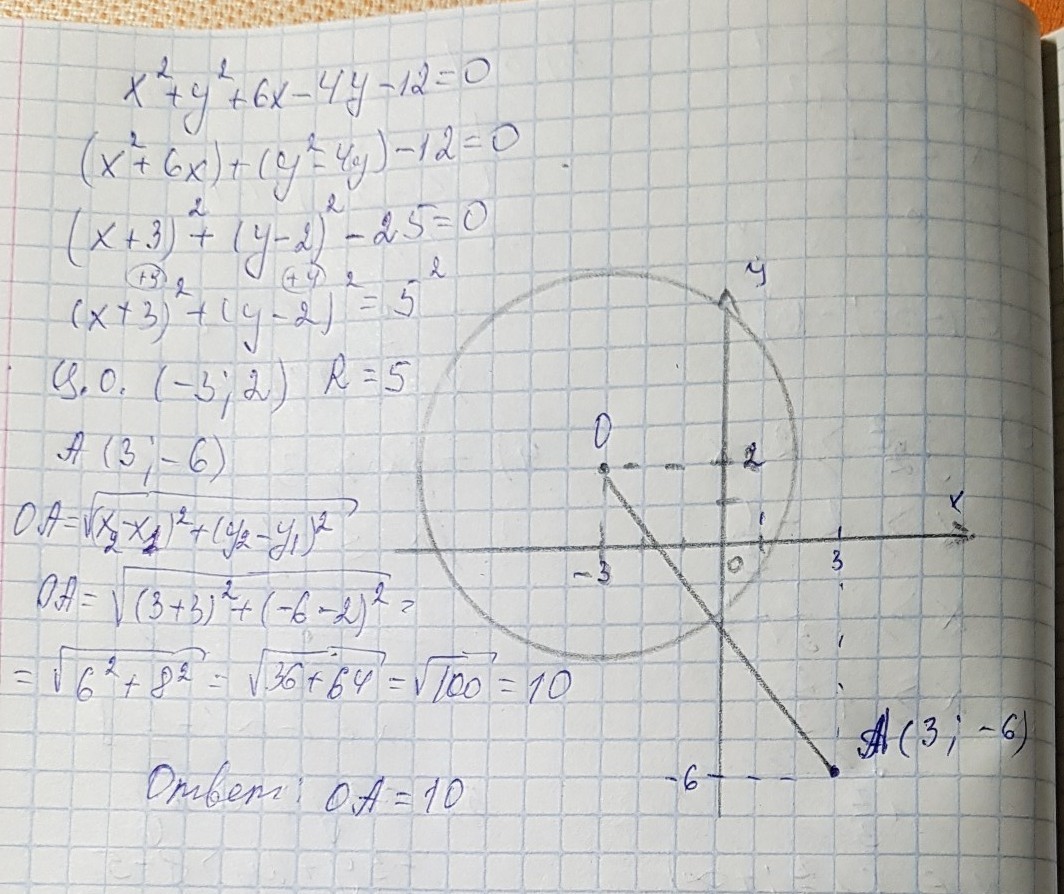 x²+y²+6x-4y-12=0
(x²+6x)+(y²-4y)-12=0
(x+3)²+(y-2)²-25=0
+9 +4
(x+3)²+(y-2)²=5²
Ц.О. (-3;2) R=5
A (3;-6)
OA=√(x₂-x₁)²+(y₂-y₁)²
OA=√(3+3)²+(-6-2)²=
=√6²+8²=√36+64=√100=10
Ответ: OA=10
y
O
2
x
-3
0
1
3
A(3;-6)
-6